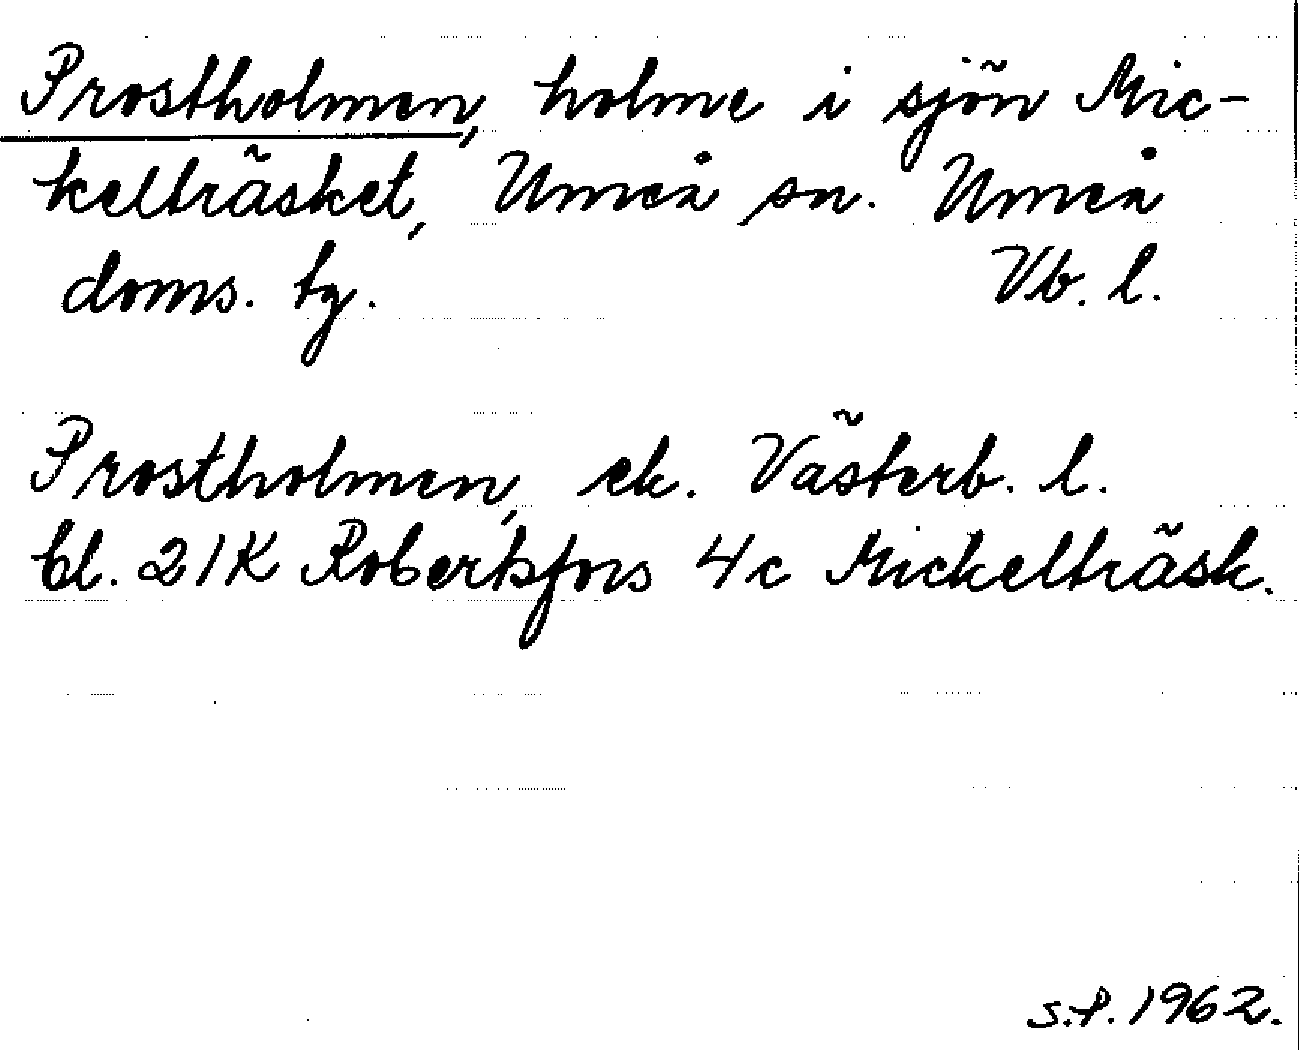 Prostholmen, holme i sjön Mic-
kelträsket, Umeå sn. Umeå
doms. tg. Vb. l.
Prostholmen, ek. Västerb. l.
bl. 21K Robertsfors 4c Mickelträsk.
S.P. 1962.